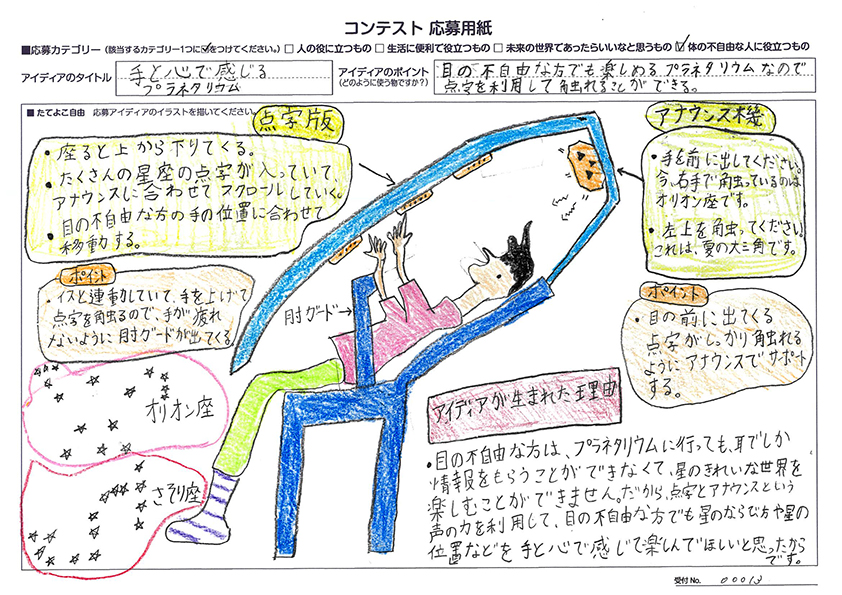 コンテスト 応募用紙
■応募カテゴリー(該当するカテゴリー1つに✓をつけてください。) □ 人の役に立つもの □ 生活に便利で役立つもの □ 未来の世界であったらいいなと思うもの ☑ 体の不自由な人に役立つもの
アイディアのタイトル
手と心で感じる
プラネタリウム
アイディアのポイント
(どのように使う物ですか?)
目の不自由な方でも楽しめるプラネタリウムなので
点字を利用して触れることができる。
■ たてよこ自由 応募アイディアのイラストを描いてください。
点字版
・座ると上から下りてくる。
・たくさんの星座の点字が入っていて、
アナウンスに合わせてスクロールしていく。
・目の不自由な方の手の位置に合わせて
移動する。
アナウンス機
・手を前に出してください。
今、右手で触っているのは
オリオン座です。
・左上を触ってください。
これは、夏の大三角です。
ポイント
・イスと連動していて、手を上げて
点字を触るので、手が疲れ
ないように肘ガードが出てくる。
肘ガード→
ポイント
・目の前に出てくる
点字がしっかり触れる
ようにアナウンスでサポート
する。
オリオン座
さそり座
アイディアが生まれた理由
・目の不自由な方は、プラネタリウムに行っても、耳でしか
情報をもらうことができなくて、星のきれいな世界を
楽しむことができません。だから、点字とアナウンスという
声の力を利用して、目の不自由な方でも星のならび方や星の
位置などを手と心で感じて楽しんでほしいと思ったから
です。
受付 No. 00013